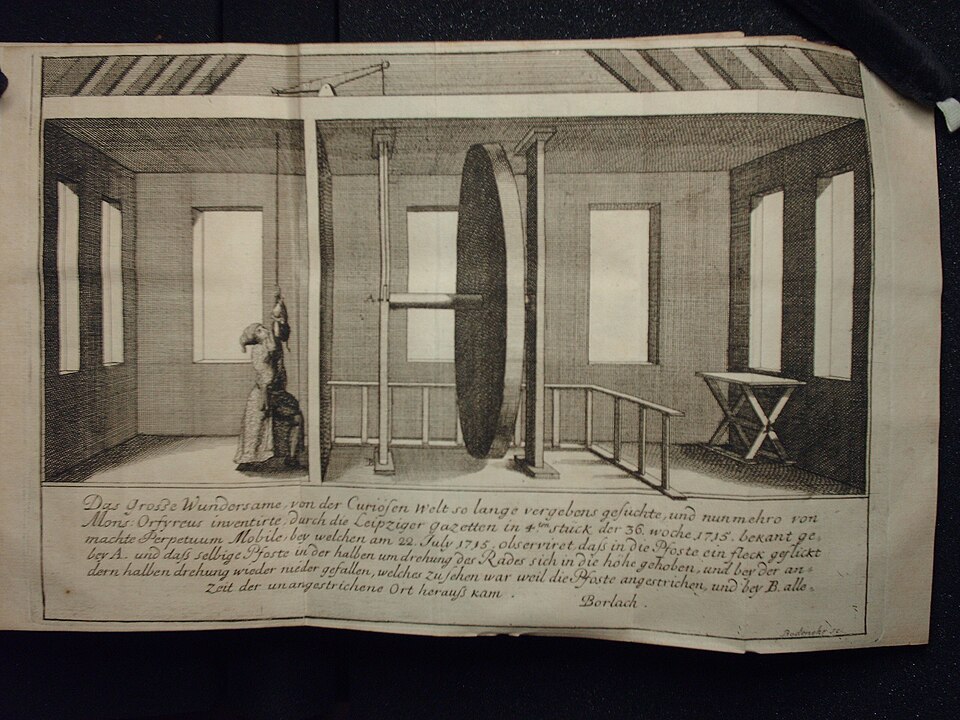 A
B
Das große Wundersame, von der Curiösen Welt so lange vergebens gesuchte, und nunmehro von
Mons: Orfyreus inventirte, durch die Leipziger gazetten in 4ten stück der 36. woche 1715. bekant ge,
machte Perpetuum Mobile, bey welchen am 22. July 1715, observiret daß in die Pfoste ein fleck geflückt
bey A. und daß selbige Pfoste in der halben um drehung des Rades sich in die höhe gehoben, und bey der an=
dern halben drehung wieder nieder gefallen, welches zu sehen war weil die Pfoste angestrichen, und bey B. alle=
zeit der unangestrichene Ort herauß kam.
Borlach.
Bodenehr sc.